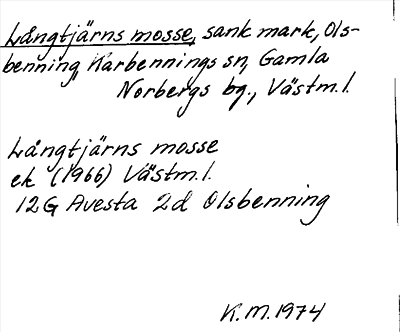 Långtjärns mosse, sank mark, Ols-
benning, Karbennings sn, Gamla
Norbergs bg., Västm.l.
Långtjärns mosse
ek (1966) Västm.l.
12G Avesta 2d Olsbenning
K.M.1974